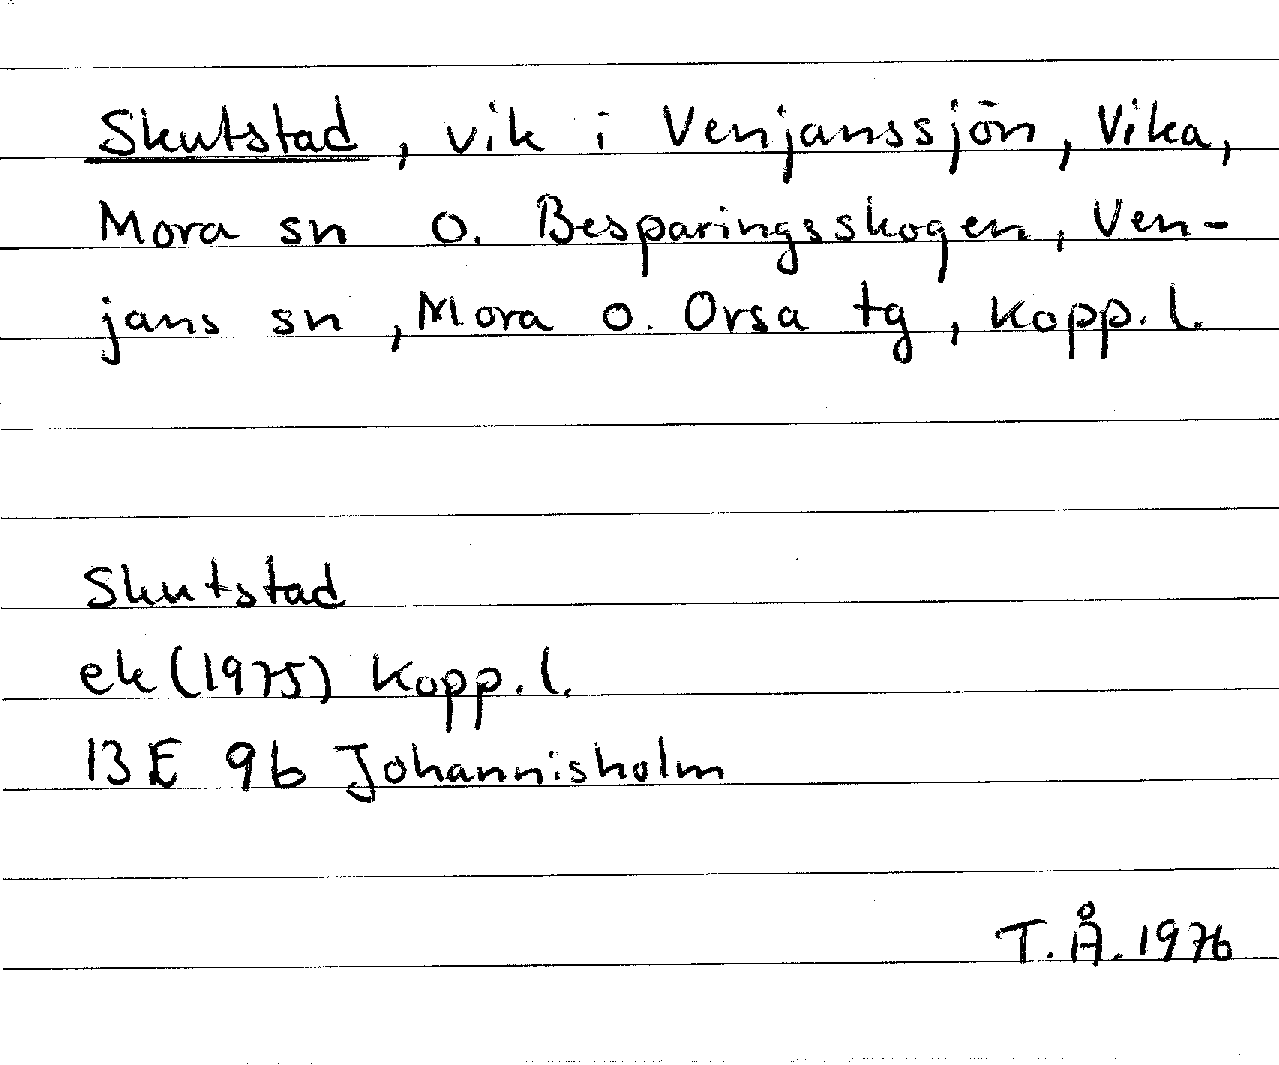 Skutstad, vik i Venjanssjön, Vika,
Mora sn o. Besparingsskogen, Ven-
jans sn, Mora o. Orsa tg, Kopp. l.
Skutstad
ek (1975) Kopp. l.
13 E 9b Johannisholm
T. Å. 1976